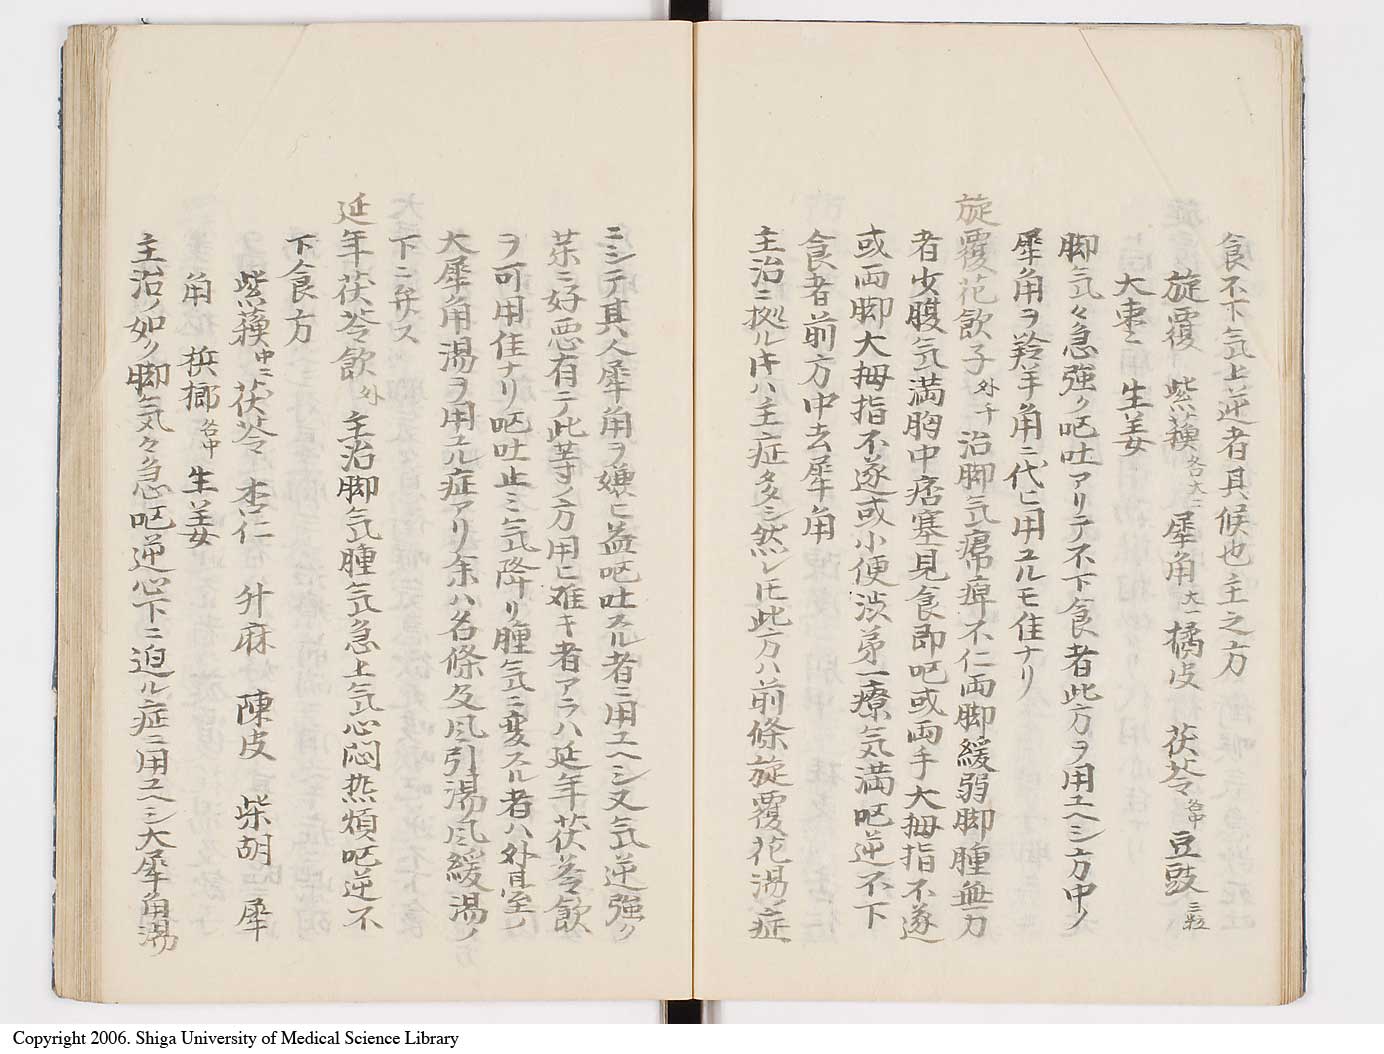 食不下気上逆者其候也主之方
旋覆 紫蘓各大二 犀角大一 橘皮 茯苓各中 豆豉三粒
大枣二 生姜
脚気々急強ク呕吐アリテ不下食者此方ヲ用ユヘシ方中ノ
犀角ヲ羚羊角ニ代ヒ用ユルモ佳ナリ
旋覆花飲子外千 治脚気㿃痺不仁両脚緩弱脚腫無力
者少腹気満胸中痞塞見食即呕或両手大拇指不遂
或両脚大拇指不遂或小便渋第一療気満呕逆不下
食者前方中去犀角
主治ニ拠ル𪜈ハ主症多シ然レ𪜈此方ハ前條旋覆花湯ノ症
ニシテ其人犀角ヲ嫌ヒ益呕吐スル者ニ用ユヘシ又気逆強ク
茱ニ好悪有テ此等ノ方用ヒ难キ者アラハ延年茯苓飲
ヲ可用佳ナリ呕吐止ミ気降リ腫気ニ変スル者ハ外臺ノ
大犀角湯ヲ用ユル症アリ余ハ名條及風引湯風緩湯ノ
下ニ弁ス
延年茯苓飲外 主治脚気腫気急上気心悶热煩呕逆不
下食方
紫蘓中二 茯苓 杏仁 升麻 陳皮 柴胡 犀
角 梹榔各中 生姜
主治ノ如ク脚気々急呕逆心下ニ迫ル症ニ用ユヘシ大犀角湯
Copyright 2006. Shiga University of Medical Science Library